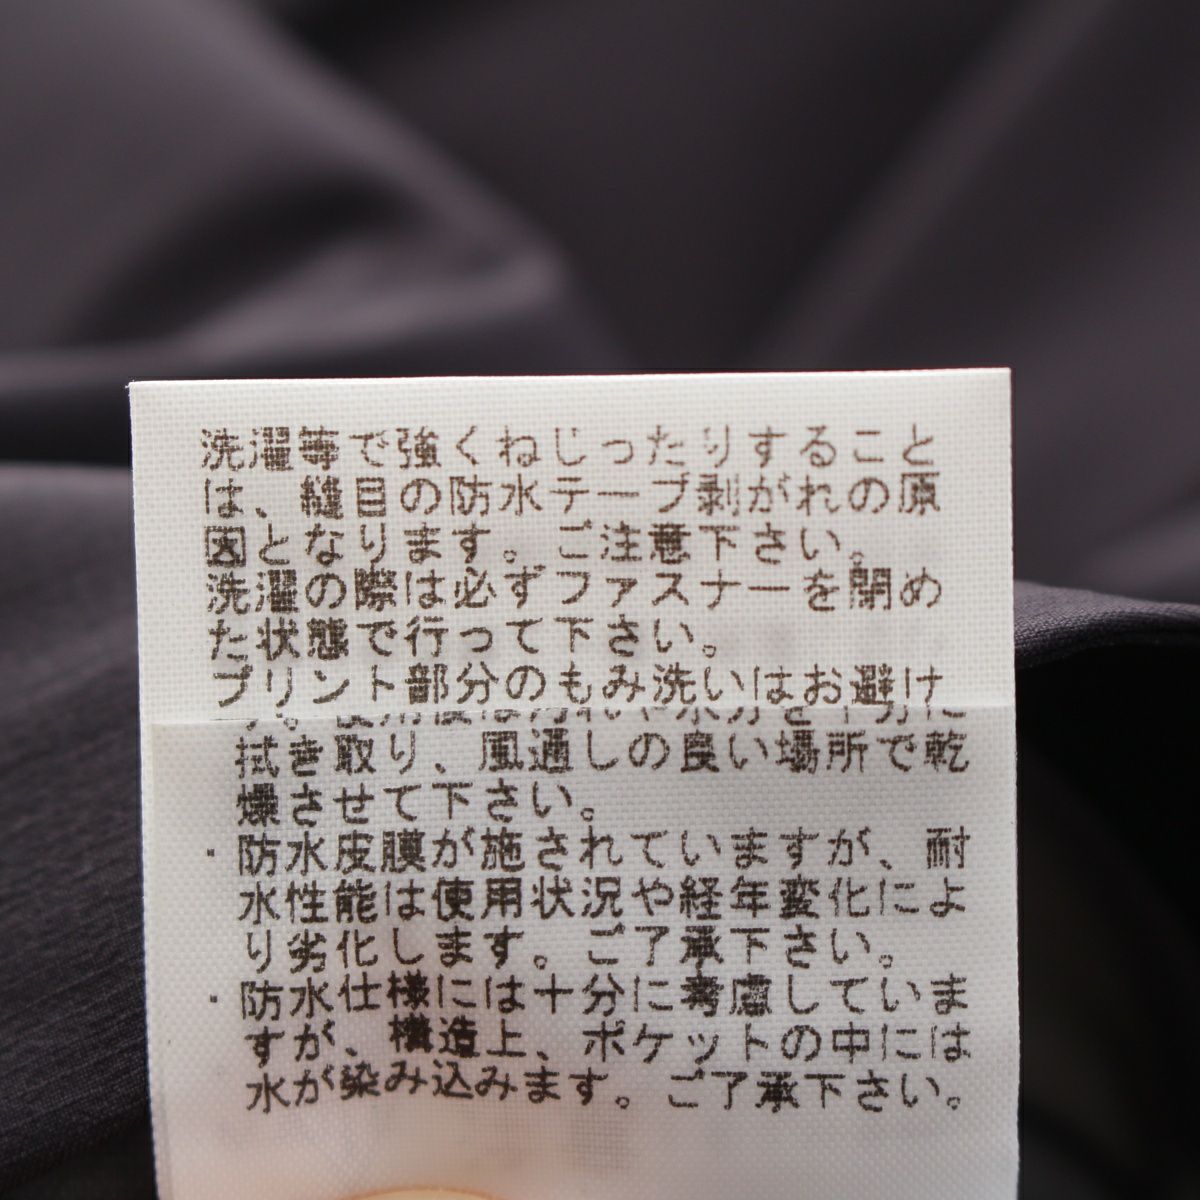 洗濯等で強くねじったりすること
は、縫目の防水テープ剥がれの原
因となります。ご注意下さい。
洗濯の際は必ずファスナーを閉め
た状態で行って下さい。
プリント部分のもみ洗いはお避け
拭き取り、風通しの良い場所で乾
燥させて下さい。
・防水皮膜が施されていますが、耐
水性能は使用状況や経年変化によ
り劣化します。ご了承下さい。
・防水仕様には十分に考慮していま
すが、構造上、ポケットの中には
水が染み込みます。ご了承下さい。